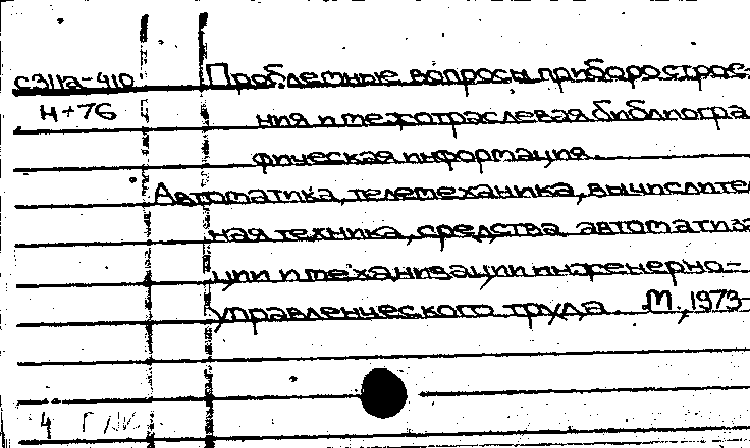 С311а-410 Проблемные вопросы приборострое-
Н+76 ния и межотраслевая библиогра
фическая информация.
Автоматика, телемеханика, вычислитель
ная техника, средства автоматиза
ции и механизации инженерно-
управленческого труда. М., 1973
4